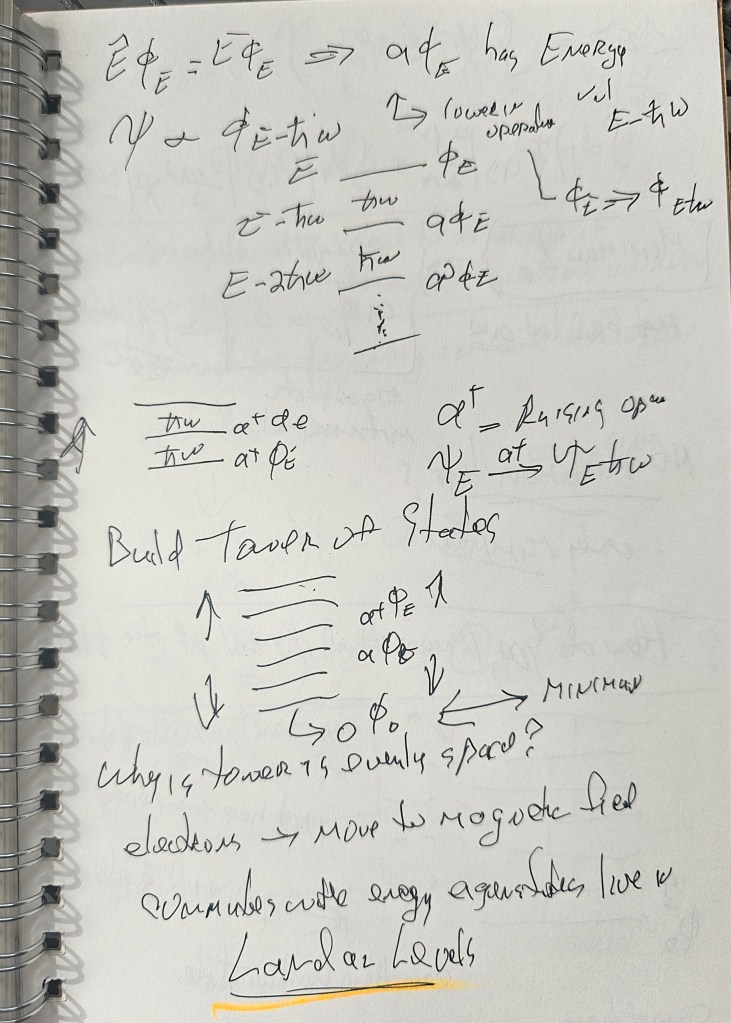 Êϕ_E = Eϕ_E ⇒ aϕ_E has Energy
ψ ∝ ϕ_E-ħω ↳ lowering operator E-ħω
E ϕ_E
ħω ϕ_E ⇒ ϕ_E+ħω
E-ħω aϕ_E
ħω
E-2ħω a²ϕ_E
ħω a†ϕ_E a† = Raising
ħω a†ϕ_E ψ_E a†→ ψ_E+ħω
Build Tower of States
↑ a†ϕ_E ↑
aϕ_E
↓ ↓
↳ 0 ϕ₀ MINIMUM
Why is tower is evenly space?
electrons → move to magnetic field
commutes with energy eigenstates live in
Landau Levels